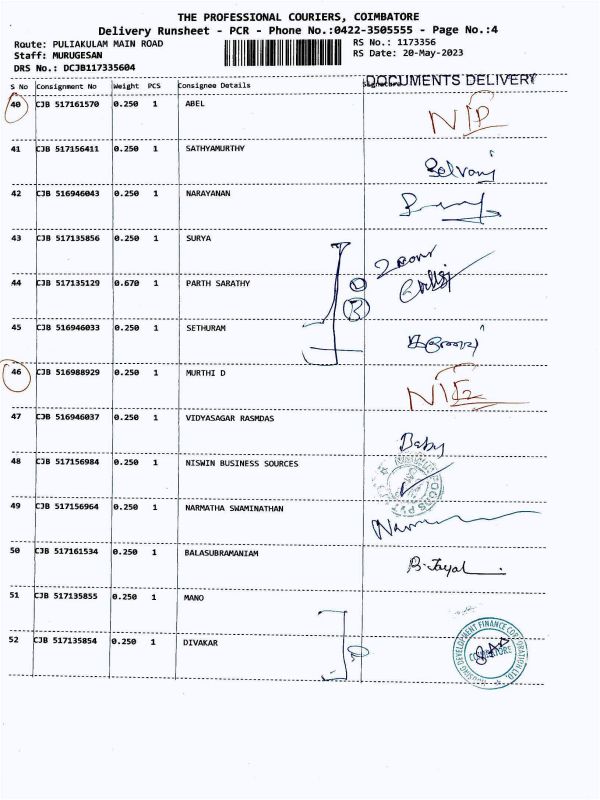 THE PROFESSIONAL COURIERS, COIMBATORE
Delivery Runsheet - PCR - Phone No.:0422-3505555 - Page No.:4
Route: PULIAKULAM MAIN ROAD RS No.: 1173356
Staff: MURUGESAN RS Date: 20-May-2023
DRS No.: DCJB117335604
DOCUMENTS DELIVERY
S No Consignment No Weight PCS Consignee Details Signature
40 CJB 517161570 0.250 1 ABEL
41 CJB 517156411 0.250 1 SATHYAMURTHY Selvani
42 CJB 516946043 0.250 1 NARAYANAN
43 CJB 517135856 0.250 1 SURYA
44 CJB 517135129 0.670 1 PARTH SARATHY
45 CJB 516946033 0.250 1 SETHURAM
46 CJB 516988929 0.250 1 MURTHI D
47 CJB 516946037 0.250 1 VIDYASAGAR RASMDAS Baby
48 CJB 517156984 0.250 1 NISWIN BUSINESS SOURCES
49 CJB 517156964 0.250 1 NARMATHA SWAMINATHAN
50 CJB 517161534 0.250 1 BALASUBRAMANIAM
51 CJB 517135855 0.250 1 MANO
52 CJB 517135854 0.250 1 DIVAKAR
HOUSING DEVELOPMENT FINANCE CORPORATION LTD.
COIMBATORE